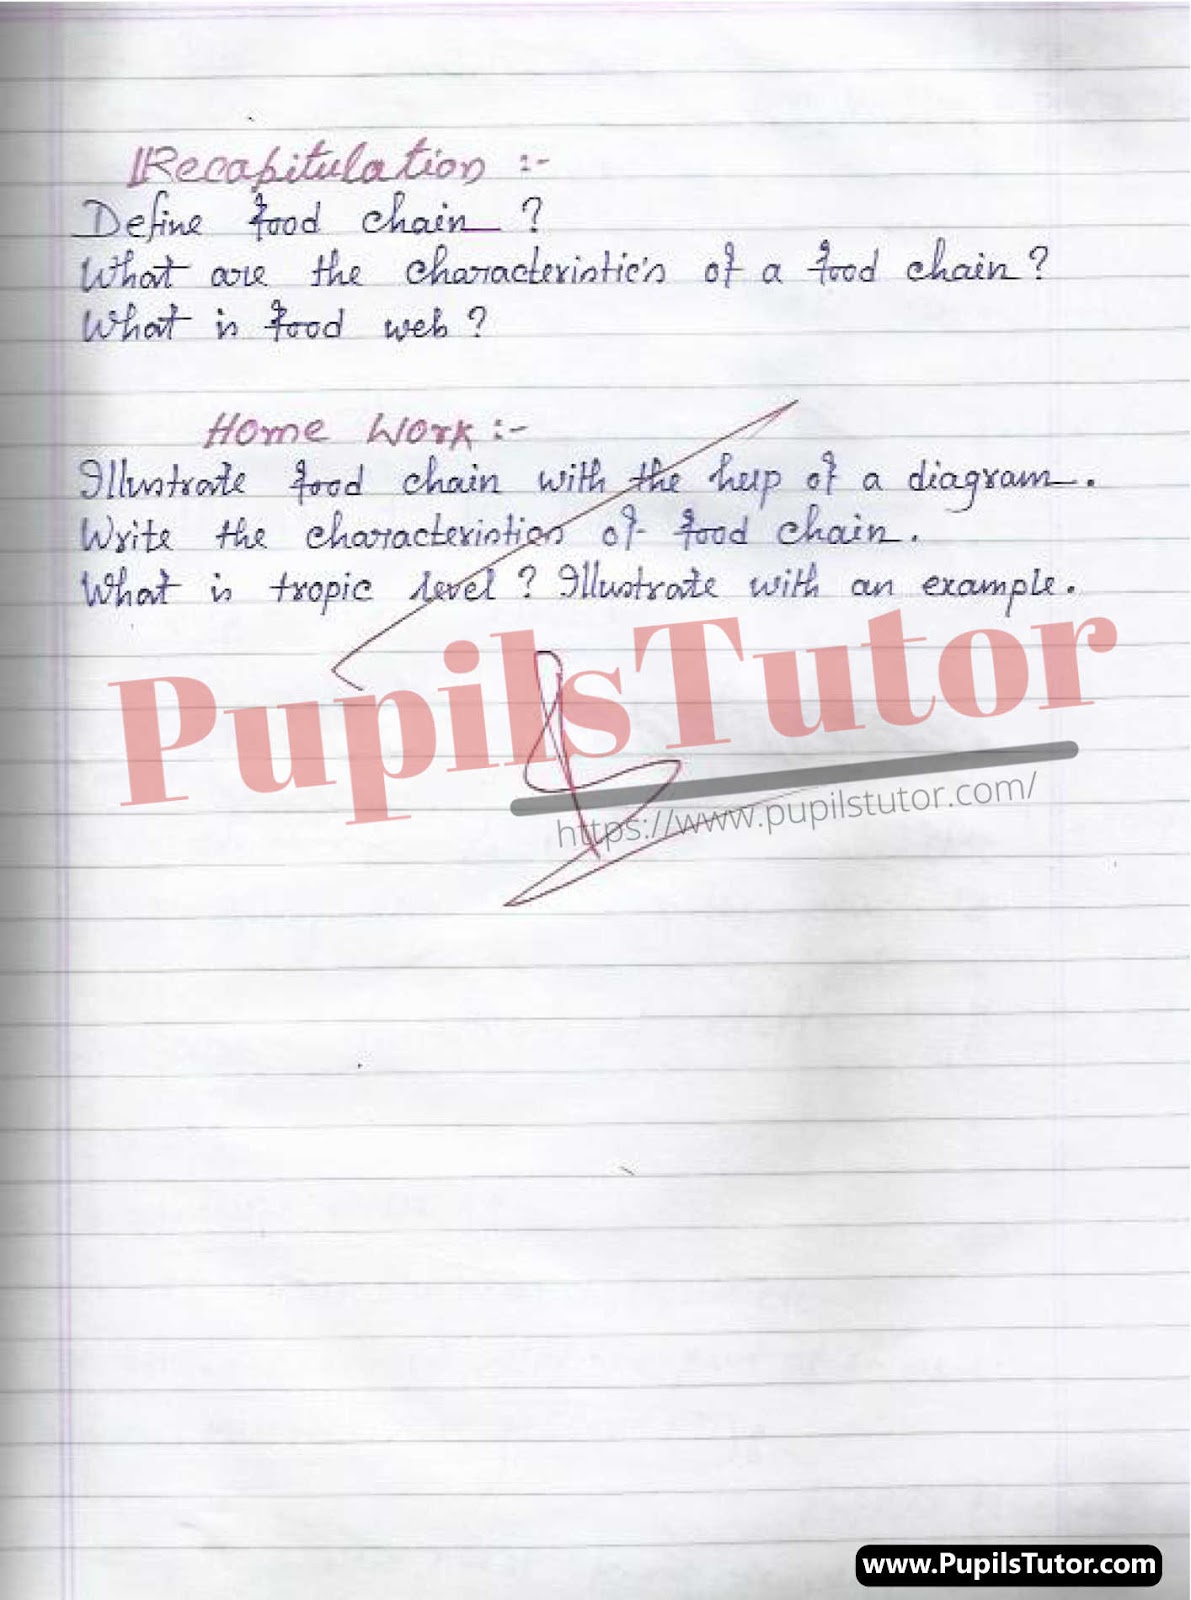 Recapitulation :-
Define food chain ?
What are the characteristic's of a food chain ?
What is food web ?
Home Work :-
Illustrate food chain with the help of a diagram.
Write the characteristics of food chain.
What is tropic level ? Illustrate with an example.
PupilsTutor
https://www.pupilstutor.com/
www.PupilsTutor.com